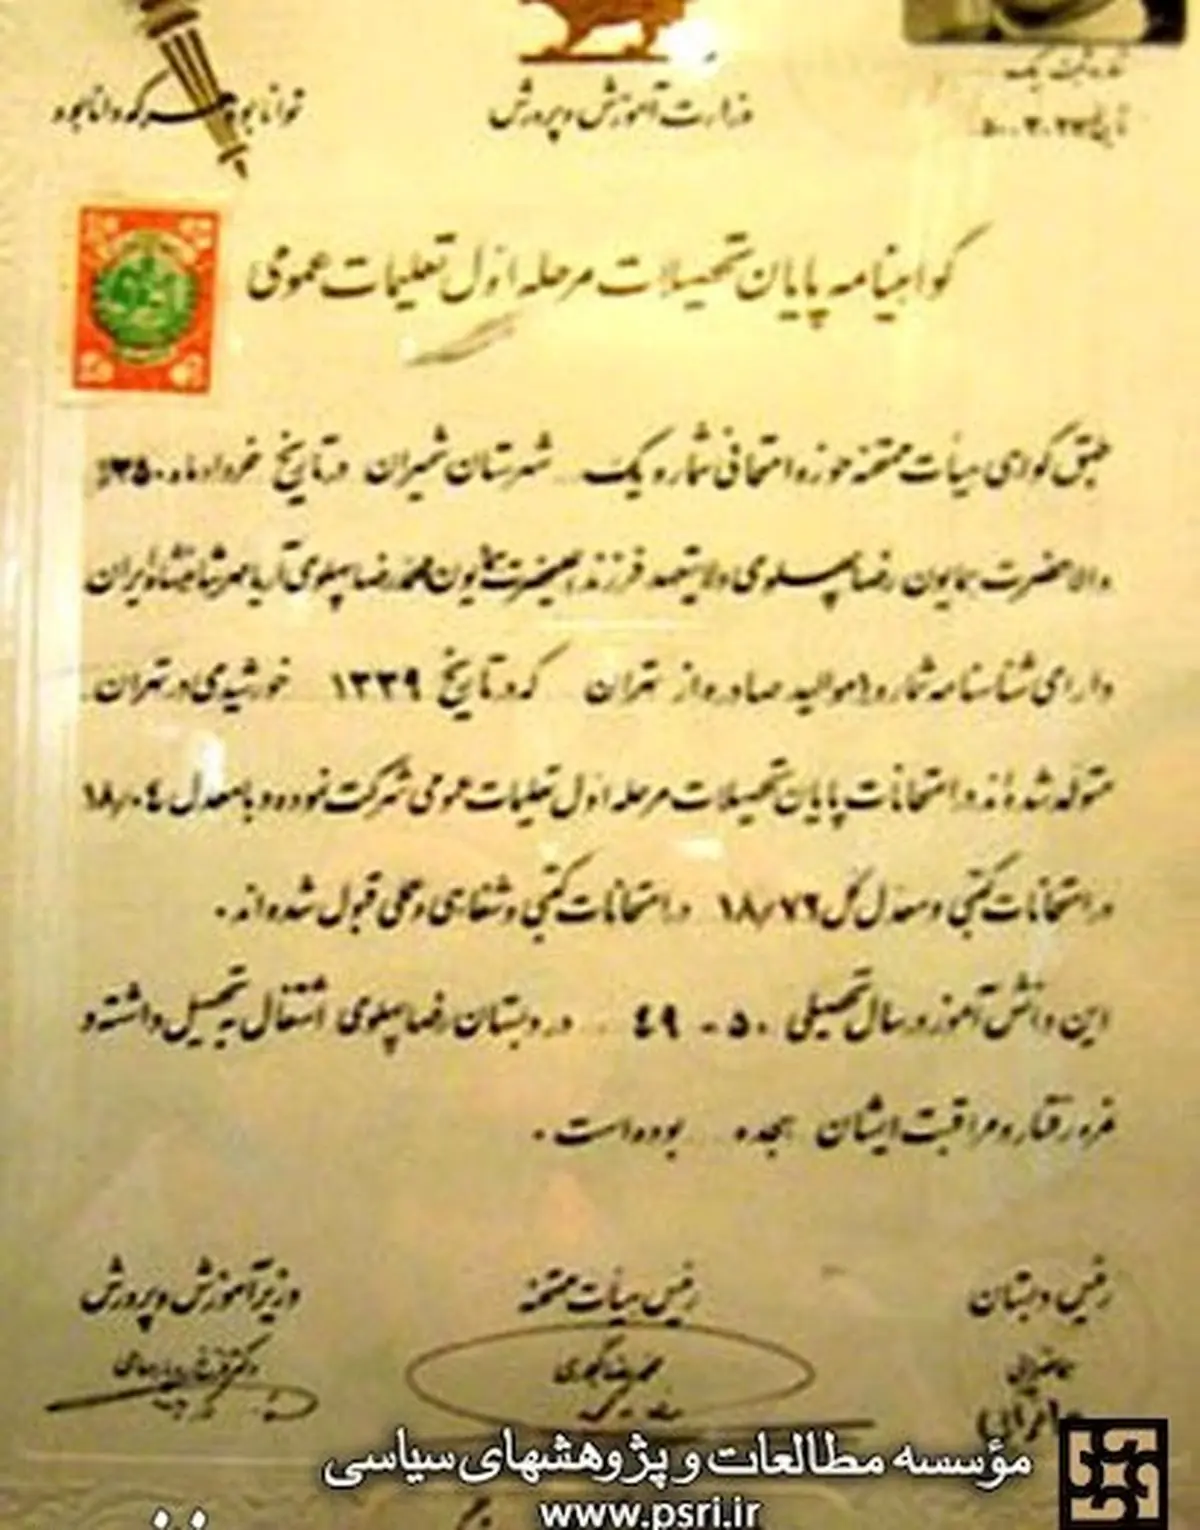 توانا بود هر که دانا بود
وزارت آموزش و پرورش
شماره ثبت یک
تاریخ ۵۰.۳.۲۳
گواهینامه پایان تحصیلات مرحله اول تعلیمات عمومی
طبق گواهی هیأت ممتحنه حوزه امتحانی شماره یک شهرستان شمیران در تاریخ خرداد ماه ۱۳۵۰
والاحضرت همایون رضا پهلوی ولایتعهد فرزند اعلیحضرت همایون محمدرضا پهلوی آریامهر شاهنشاه ایران
دارای شناسنامه شماره موالید صادره از تهران که در تاریخ ۱۳۳۹ خورشیدی در تهران
متولد شده‌اند در امتحانات پایان تحصیلات مرحله اول تعلیمات عمومی شرکت نموده و با معدل ۱۸/۰۴
در امتحانات کتبی و معدل کل ۱۸/۷۶ در امتحانات کتبی و شفاهی و عملی قبول شده‌اند.
این دانش آموز در سال تحصیلی ۵۰ - ۴۹ در دبستان رضا پهلوی اشتغال به تحصیل داشته و
نمره رفتار و مراقبت ایشان هجده بوده است.
رئیس دبستان
رئیس هیأت ممتحنه
وزیر آموزش و پرورش
دکتر فرخ رو پارسای
مؤسسه مطالعات و پژوهشهای سیاسی
www.psri.ir